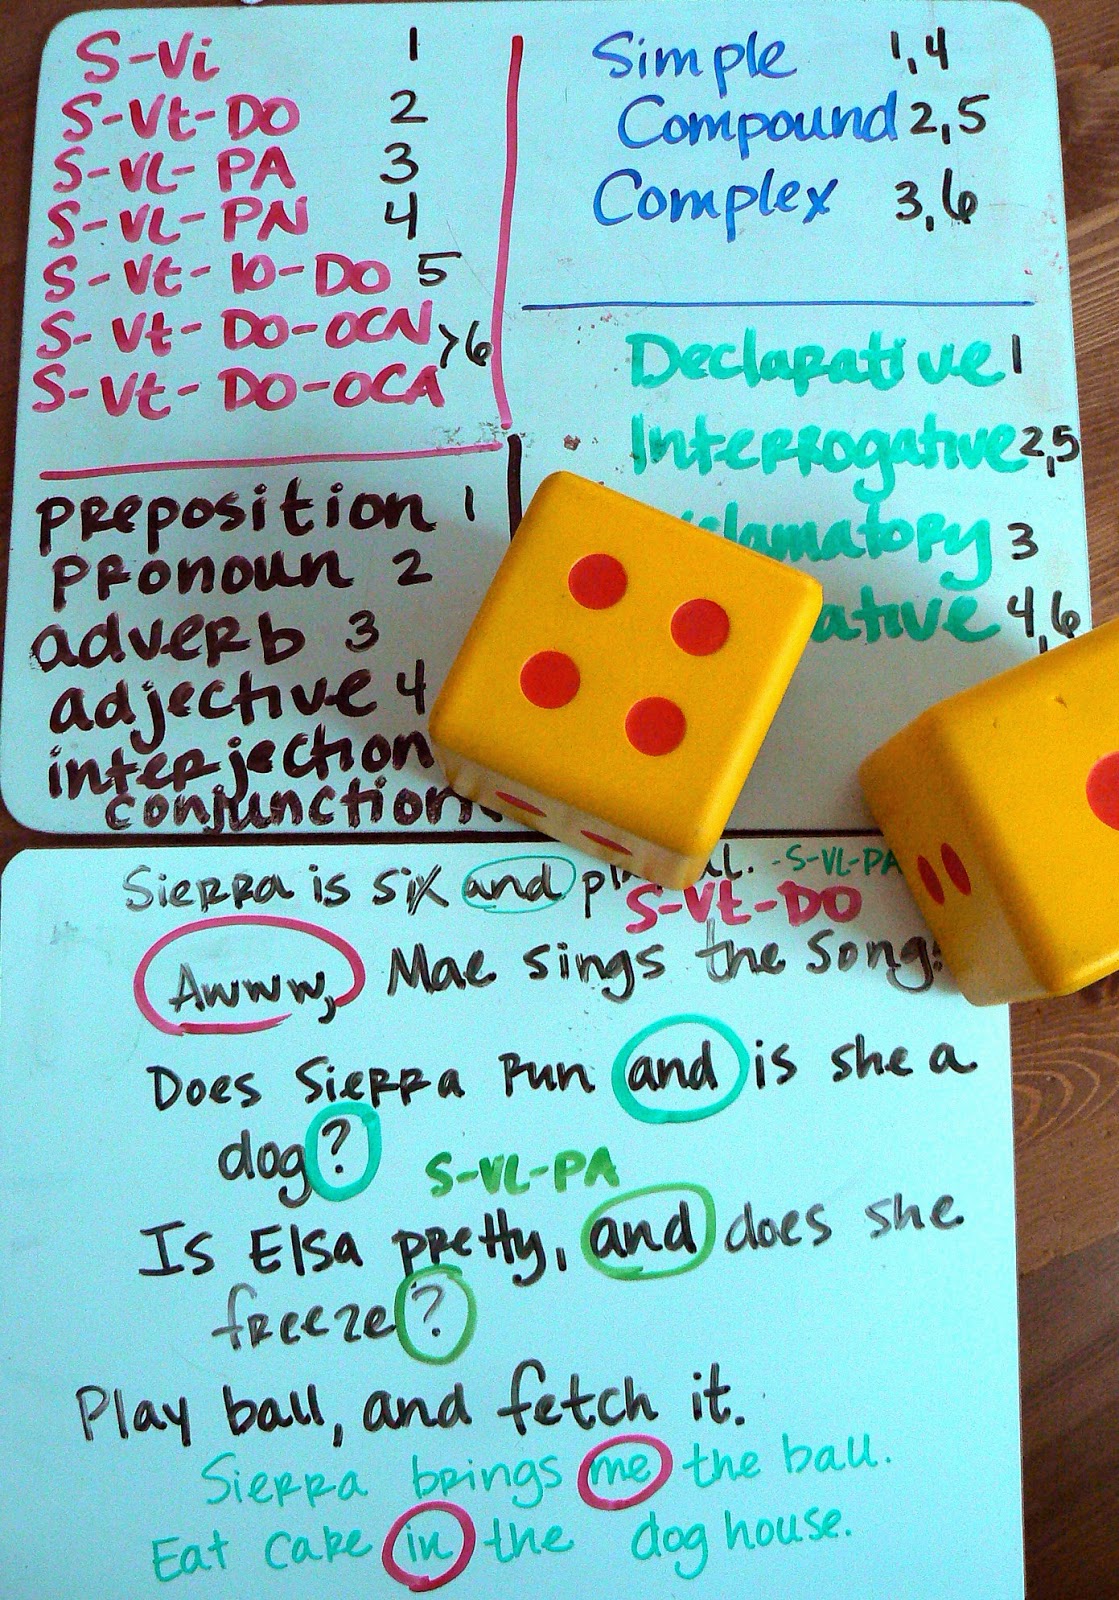 S-Vi 1
S-Vt-DO 2
S-VL-PA 3
S-VL-PN 4
S-Vt-IO-DO 5
S-Vt-DO-OCN
>6
S-Vt-DO-OCA
Simple 1,4
Compound 2,5
Complex 3,6
Declarative 1
Interrogative 2,5
clamatory 3
ative 4,6
preposition 1
pronoun 2
adverb 3
adjective 4
interjection
conjunction
Sierra is six and -S-VL-PA
S-Vt-DO
Awww, Mae sings the song.
Does Sierra run and is she a
dog?
S-VL-PA
Is Elsa pretty, and does she
freeze?
Play ball, and fetch it.
Sierra brings me the ball.
Eat cake in the dog house.